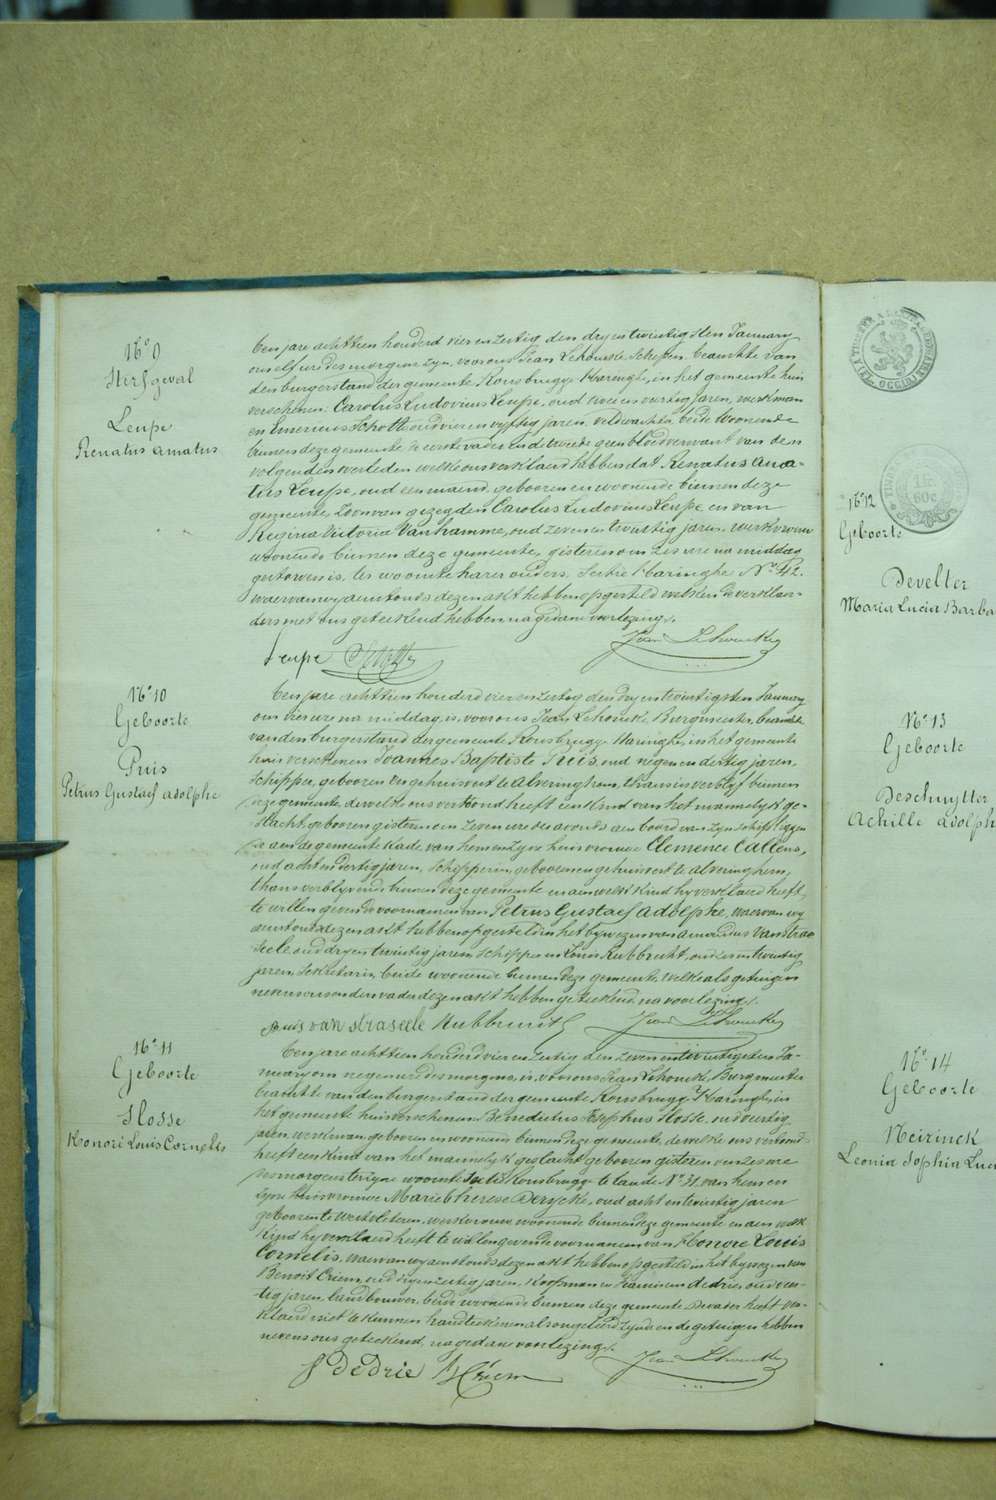 N° 9
Sterfgeval
Leupe
Renatus Amatus
Ten jare achttien honderd vier en zestig den dry en twintigsten January
ons elf ure des morgens zyn, voor ons Jean Lehoucke Schepen, beambte van
den burgerstand der gemeente Rousbrugge Haringhe, in het gemeente huis
verschenen: Carolus Ludovicus Leupe, oud twee en veertig jaren, werkman
en Emericus Schotte oud vier en vyftig jaren, veldwachter, beide woonende
binnen deze gemeente de eerste vader en de tweede geen bloedverwant van den
volgenden overleden welke ons verklaard hebben dat Renatus Ama-
tus Leupe, oud een maend, gebooren en woonende binnen deze
gemeente, Zoon van gezegden Carolus Ludovicus Leupe en van
Regina Victoria Vanhamme, oud zeven en twintig jaren, werkvrouw
woonende binnen deze gemeente, gisteren om zes ure na middag
gestorven is, ter woonste harer ouders, Sectie Haringhe N° 42.
waervan wy aenstonds dezen akt hebben opgesteld welken de verklaer-
ders met ons geteekend hebben na gedane voorlezing.
Leupe Schotte Jean Lehoucke
N° 10
Geboorte
Puis
Petrus Gustaef Adolphe
Ten jare achttien honderd vier en zestig den dry en twintigsten January
om vier ure na middag, is, voor ons Jean Lehoucke Burgmeester, beambte
van den burgerstand der gemeente Rousbrugge Haringhe, in het gemeente
huis verschenen Joannes Baptiste Puis, oud negen en dertig jaren,
schipper, gebooren en gehuisvest te Alveringhem, thans in verblyf binnen
deze gemeente, dewelke ons vertoond heeft een kind van het mannelyk ge-
slacht, gebooren gisteren om zeven ure des avonds aen boord van zyn schip liggen-
de aen de gemeente Kade, van hem en zyne huisvrouwe Clemence Callens,
oud acht en dertig jaren, schipperin, gebooren en gehuisvest te Alveringhem,
thans verblyvende binnen deze gemeente en aen welk kind hy verklaerd heeft,
te willen geven de voornamen van Petrus Gustaef Adolphe, waervan wy
aenstonds dezen akt hebben opgesteld in het bywezen van Amandus Vanstrae-
seele oud dry en twintig jaren, schipper en Louis Rubbrecht, oud en twintig
jaren, Sekretaris, beide woonende binnen deze gemeente, welke als getuigen
nevens ons en den vader dezen akt hebben geteekend, na voorlezing.
puis van straseele Rubbrecht Jean Lehoucke
N° 11
Geboorte
Hosse
Honoré Louis Cornelis
Ten jare achttien honderd vier en zestig den zeven en twintigsten Ja-
nuary om negen ure des morgens, is, voor ons Jean Lehoucke, Burgmeester
beambte van den burgerstand der gemeente Rousbrugge Haringhe, in
het gemeente huis verschenen Benedictus Josephus Hosse, oud veertig
jaren, werkman gebooren en woonende binnen deze gemeente, dewelke ons vertoond
heeft een kind van het mannelyk geslacht, gebooren gisteren om zes ure
des morgens te zyne woonste Sectie Rousbrugge te lande N° 31, van hem en
zyne huisvrouwe Marie Therese Derycke, oud acht en twintig jaren
gebooren te Westvleteren, werkvrouw woonende binnen deze gemeente en aen welk
kind hy verklaerd heeft te willen geven de voornamen van Honoré Louis
Cornelis, waervan wy aenstonds dezen akt hebben opgesteld in het bywezen van
Benoit Criem, oud dry en zestig jaren, koopman en Francis en dedrie, oud veer-
tig jaren, landbouwer, beide woonende binnen deze gemeente De vader heeft ver-
klaerd niet te kunnen handteekenen als ongeleerd zynde en de getuigen hebben
nevens ons geteekend, na gedane voorlezing.
F Dedrie B Criem Jean Lehoucke
1 fr
60c
N° 12
Geboorte
Develter
Maria Lucia Barba
N° 13
Geboorte
Deschuytter
Achille Adolph
N° 14
Geboorte
Neirinck
Leonia Sophia Luci